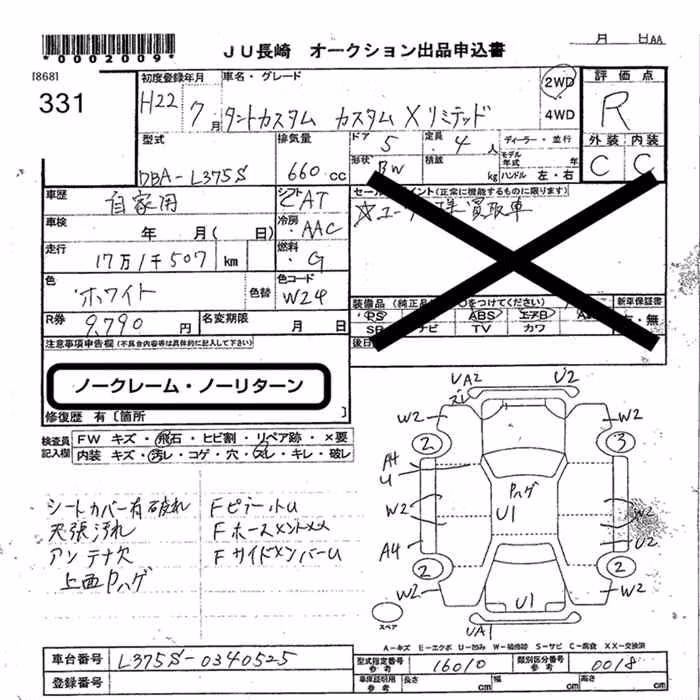 *0002009*
JU長崎 オークション出品申込書
月 日AA
[868]
331
初度登録年月 H22年 7月
車名・グレード
タントカスタム カスタムXリミテッド
2WD
4WD
評価点
R
外装 内装
C C
型式
DBA-L375S
排気量
660 cc
ドア 5
定員 4 人
ディーラー・並行
形状 BW
積載 kg
モデル年式 年
ハンドル 左・右
車歴
自家用
シフト CAT
車検 年 月( 日)
冷房 AAC
走行 17万1千507 km
燃料 G
色
ホワイト
色替
色コード
W24
R券 9,790 円
名変期限 月 日
セールスポイント(正常に機能するものに限ります)
買取車
装備品(純正品 ○をつけてください)
新車保証書
PS ABS エアB
TV カワ
無
注意事項申告欄(不具合内容等は具体的に記入して下さい)
ノークレーム・ノーリターン
修復歴 有[箇所 ]
検査員記入欄
FW キズ・飛石・ヒビ割・リペア跡・×要
内装 キズ・汚レ・コゲ・穴・スレ・キレ・破レ
シートカバー有破れ
天張汚れ
アンテナ欠
上面Pハゲ
FピラーtU
Fサイドメンバー U
UA2
U2
W2
W2
2
3
A4
U
Pハゲ
U1
W2
W2
A4
U2
2
2
W2
W2
U1
UA1
スペア
A-キズ E-エクボ U-凹み W-補修跡 S-サビ C-腐食 XX-交換済
車台番号 L375S-0340525
登録番号
型式指定番号 参考 16010
類別区分番号 参考 0018
車庫証明用 参考 長さ cm 幅 cm 高さ cm